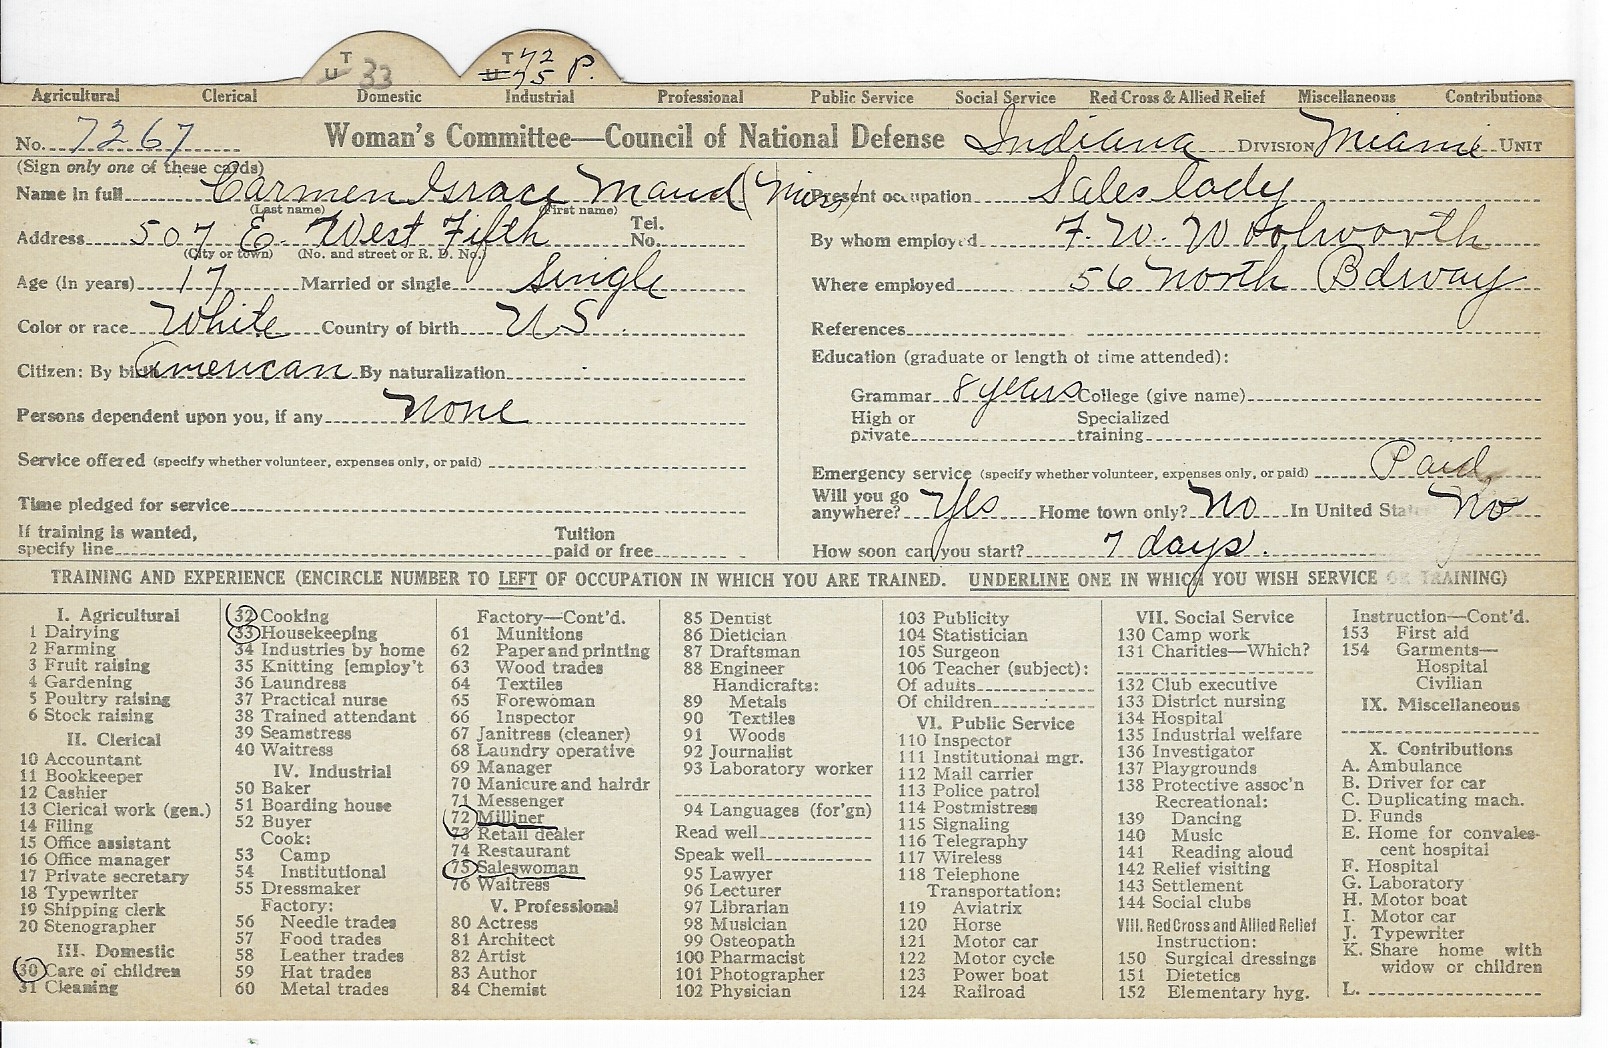 T 33 T 72 P.
U U 75
Agricultural Clerical Domestic Industrial Professional Public Service Social Service Red Cross & Allied Relief Miscellaneous Contributions
No. 7267 Woman's Committee—Council of National Defense Indiana DIVISION Miami UNIT
(Sign only one of these cards)
Name in full Carmen Grace Maud (Miss)
(Last name) (First name)
Address 507 E. West Fifth Tel. No.
(City or town) (No. and street or R. D. No.)
Age (in years) 17 Married or single Single
Color or race White Country of birth U S.
Citizen: By birth American By naturalization
Persons dependent upon you, if any None
Service offered (specify whether volunteer, expenses only, or paid)
Time pledged for service
If training is wanted, Tuition
specify line paid or free
Present occupation Sales lady
By whom employed F. W. Woolworth
Where employed 56 North Bdway
References
Education (graduate or length of time attended):
Grammar 8 years College (give name)
High or Specialized
private training
Emergency service (specify whether volunteer, expenses only, or paid) Paid
Will you go
anywhere? Yes Home town only? No In United States No
How soon can you start? 7 days.
TRAINING AND EXPERIENCE (ENCIRCLE NUMBER TO LEFT OF OCCUPATION IN WHICH YOU ARE TRAINED. UNDERLINE ONE IN WHICH YOU WISH SERVICE OR TRAINING)
I. Agricultural
1 Dairying
2 Farming
3 Fruit raising
4 Gardening
5 Poultry raising
6 Stock raising
II. Clerical
10 Accountant
11 Bookkeeper
12 Cashier
13 Clerical work (gen.)
14 Filing
15 Office assistant
16 Office manager
17 Private secretary
18 Typewriter
19 Shipping clerk
20 Stenographer
III. Domestic
30 Care of children
31 Cleaning
32 Cooking
33 Housekeeping
34 Industries by home
35 Knitting [employ't
36 Laundress
37 Practical nurse
38 Trained attendant
39 Seamstress
40 Waitress
IV. Industrial
50 Baker
51 Boarding house
52 Buyer
Cook:
53 Camp
54 Institutional
55 Dressmaker
Factory:
56 Needle trades
57 Food trades
58 Leather trades
59 Hat trades
60 Metal trades
Factory—Cont'd.
61 Munitions
62 Paper and printing
63 Wood trades
64 Textiles
65 Forewoman
66 Inspector
67 Janitress (cleaner)
68 Laundry operative
69 Manager
70 Manicure and hairdr
71 Messenger
72 Milliner
73 Retail dealer
74 Restaurant
75 Saleswoman
76 Waitress
V. Professional
80 Actress
81 Architect
82 Artist
83 Author
84 Chemist
85 Dentist
86 Dietician
87 Draftsman
88 Engineer
Handicrafts:
89 Metals
90 Textiles
91 Woods
92 Journalist
93 Laboratory worker
94 Languages (for'gn)
Read well
Speak well
95 Lawyer
96 Lecturer
97 Librarian
98 Musician
99 Osteopath
100 Pharmacist
101 Photographer
102 Physician
103 Publicity
104 Statistician
105 Surgeon
106 Teacher (subject):
Of adults
Of children
VI. Public Service
110 Inspector
111 Institutional mgr.
112 Mail carrier
113 Police patrol
114 Postmistress
115 Signaling
116 Telegraphy
117 Wireless
118 Telephone
Transportation:
119 Aviatrix
120 Horse
121 Motor car
122 Motor cycle
123 Power boat
124 Railroad
VII. Social Service
130 Camp work
131 Charities—Which?
132 Club executive
133 District nursing
134 Hospital
135 Industrial welfare
136 Investigator
137 Playgrounds
138 Protective assoc'n
Recreational:
139 Dancing
140 Music
141 Reading aloud
142 Relief visiting
143 Settlement
144 Social clubs
VIII. Red Cross and Allied Relief
Instruction:
150 Surgical dressings
151 Dietetics
152 Elementary hyg.
Instruction—Cont'd.
153 First aid
154 Garments—
Hospital
Civilian
IX. Miscellaneous
X. Contributions
A. Ambulance
B. Driver for car
C. Duplicating mach.
D. Funds
E. Home for convales-
cent hospital
F. Hospital
G. Laboratory
H. Motor boat
I. Motor car
J. Typewriter
K. Share home with
widow or children
L.